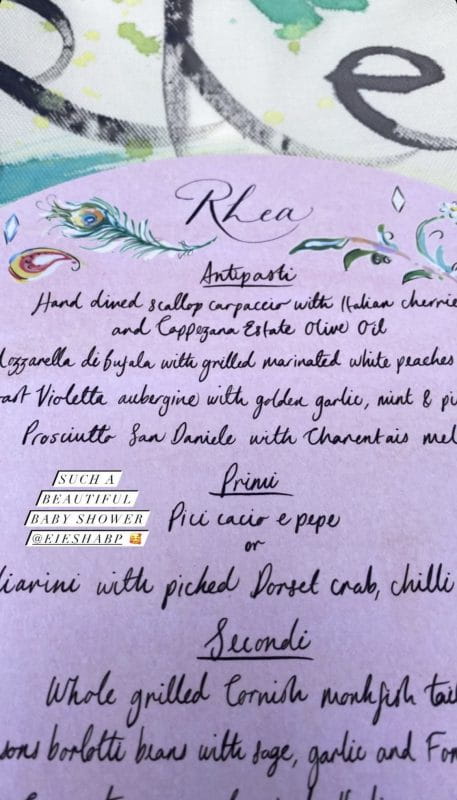 Rhea
Antipasti
Hand dived scallop carpaccio with Italian cherrie
and Cappezana Estate Olive Oil
ozzarella di bufala with grilled marinated white peaches
ast Violetta aubergine with golden garlic, mint & pi
Prosciutto San Daniele with Charentais mel
SUCH A
BEAUTIFUL
BABY SHOWER
@EIESHABP 🥰
Primi
Pici cacio e pepe
or
liarini with picked Dorset crab, chilli
Secondi
Whole grilled Cornish monkfish tail
sons borlotti beans with sage, garlic and For